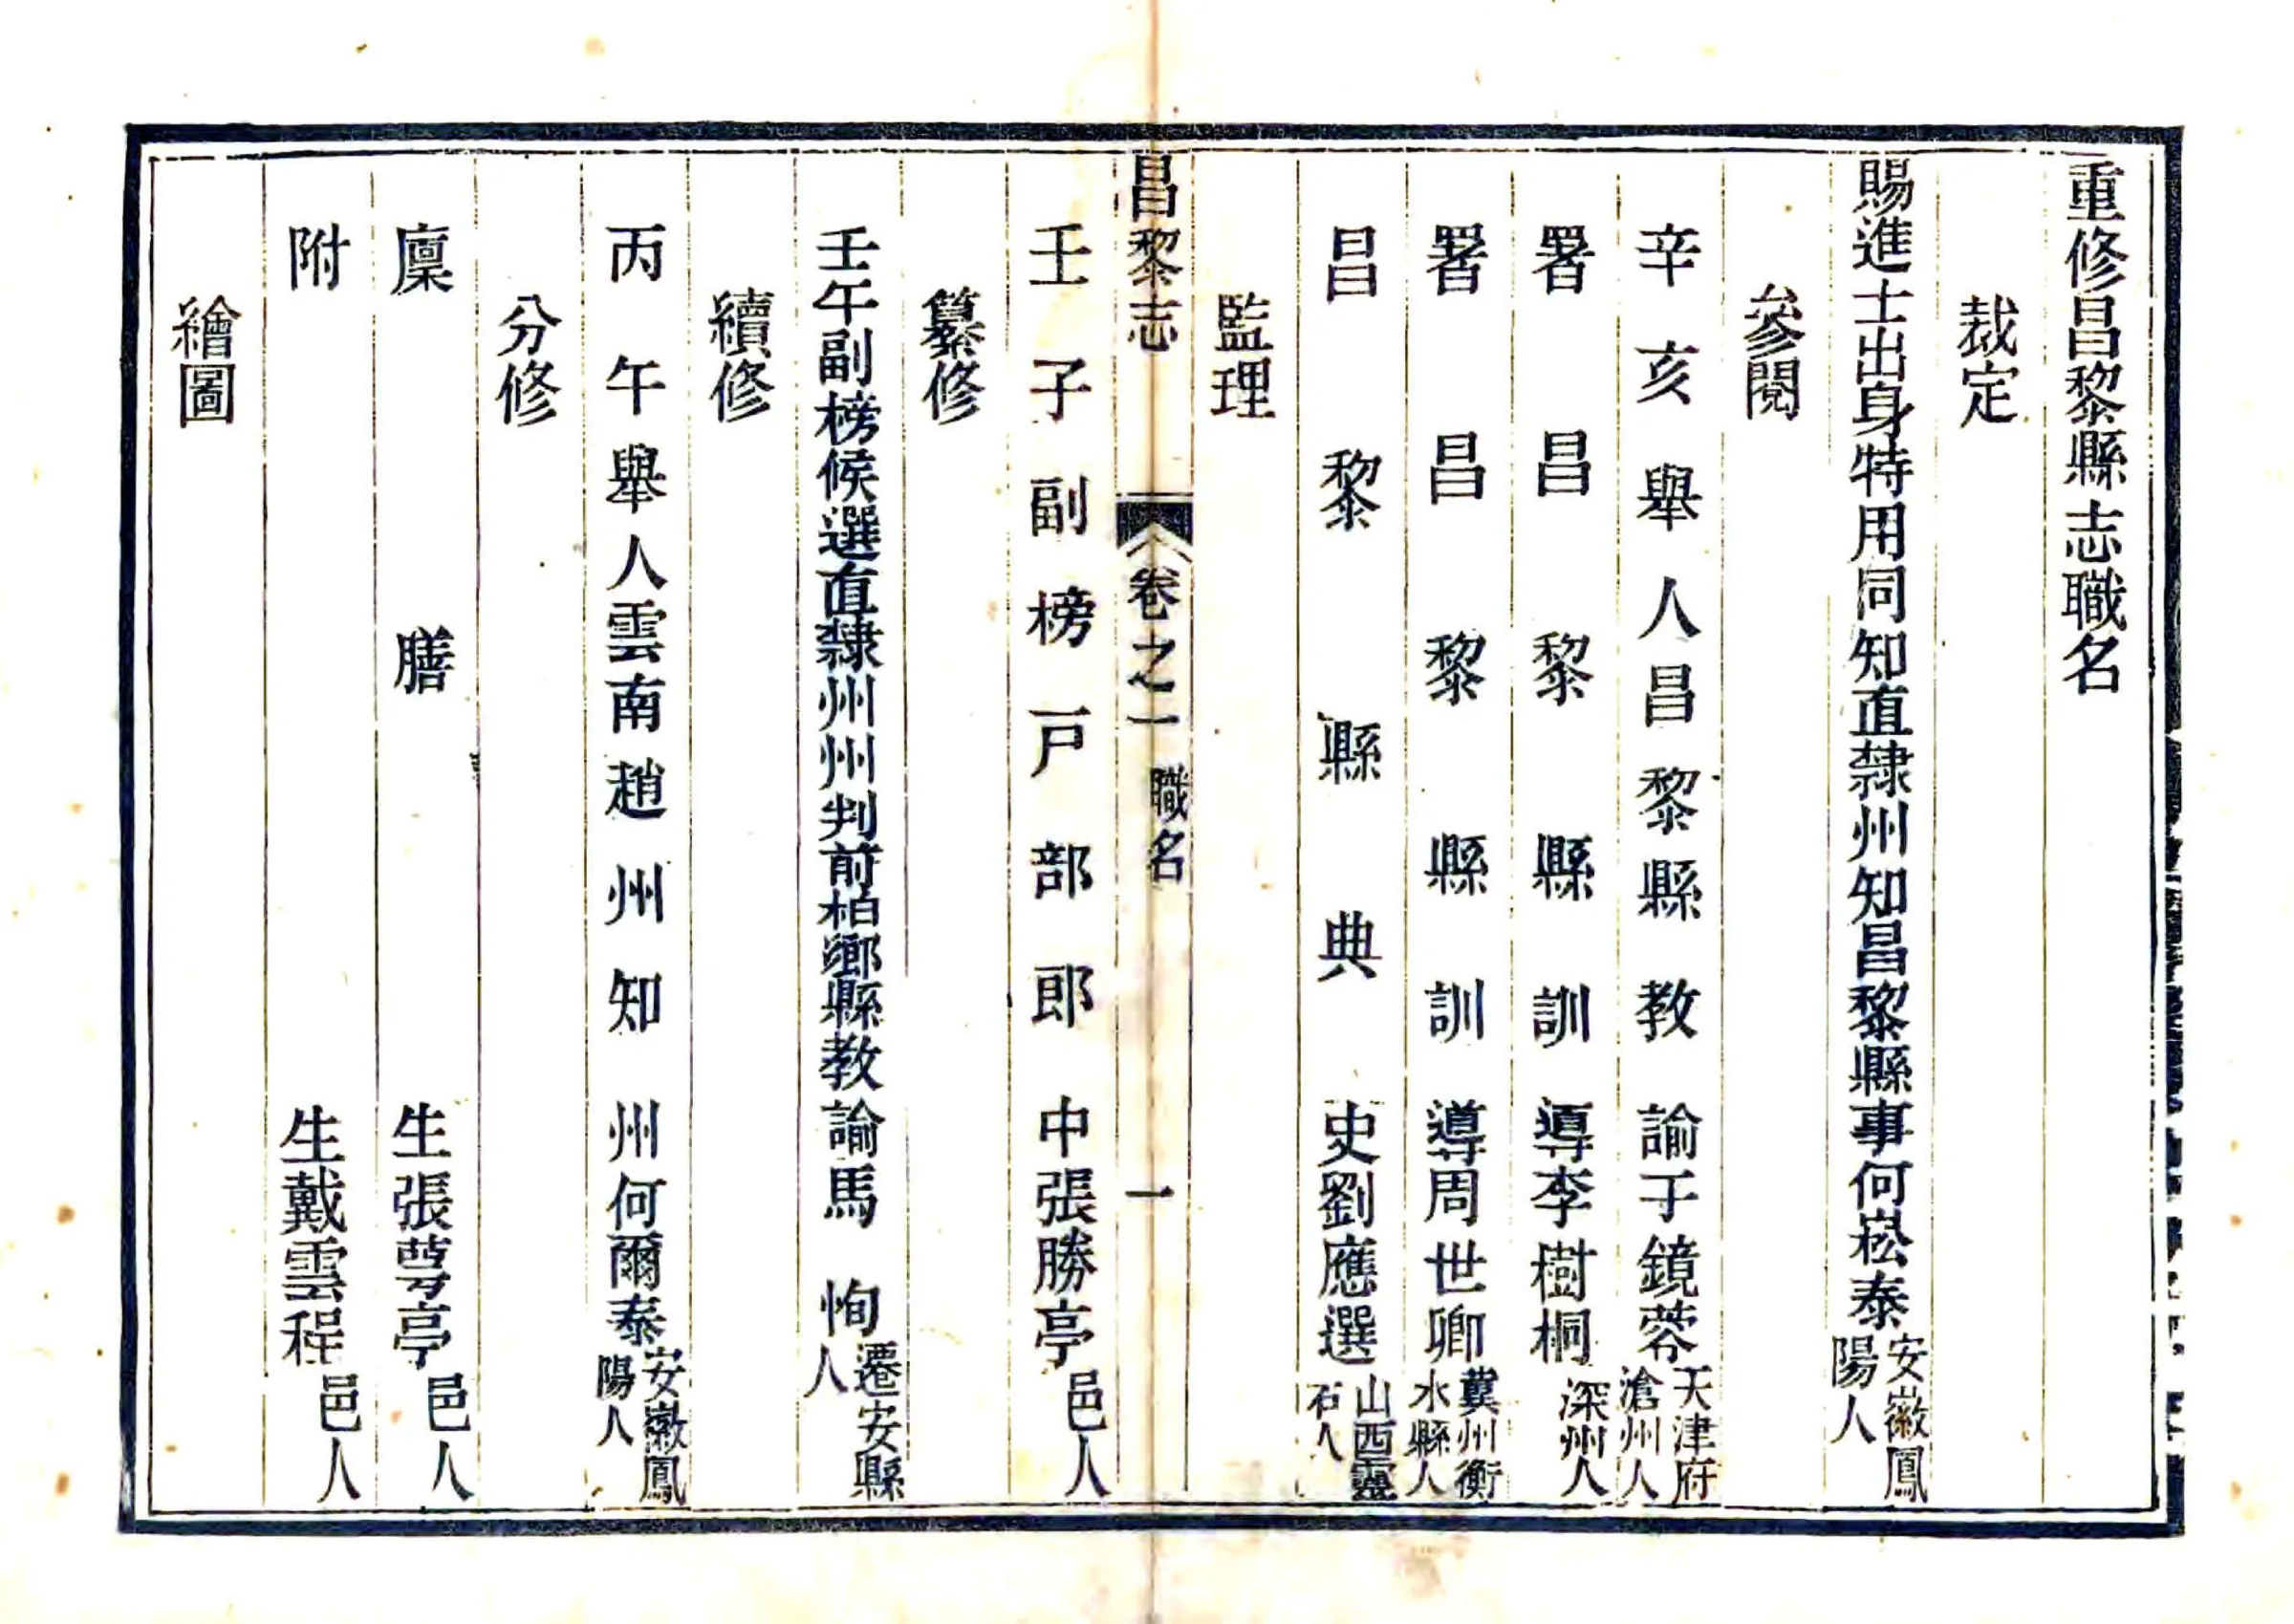 重修昌黎縣志職名
裁定
賜進士出身特用同知直隸州知昌黎縣事何崧泰安徽鳳陽人
參閱
辛亥舉人昌黎縣教諭于鏡蓉天津府滄州人
署昌黎縣訓導李樹桐深州人
署昌黎縣訓導周世卿冀州衡水縣人
昌黎縣典史劉應選山西靈石人
監理
壬子副榜戶部郎中張勝亭邑人
昌黎志 卷之一 職名 一
纂修
壬午副榜候選直隸州州判前柏鄉縣教諭馬恂遷安縣人
續修
丙午舉人雲南趙州知州何爾泰安徽鳳陽人
分修
廩膳生張萼亭邑人
附生戴雲程邑人
繪圖